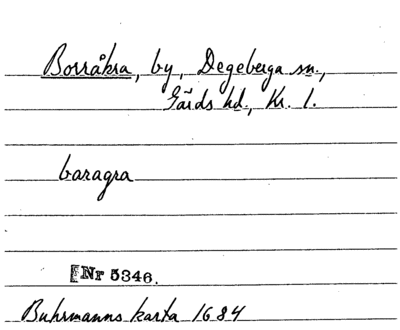 Borråkra, by, Degeberga sn.,
Gärds hd., Kr. l.
baragra
[Nr 5346.
Buhrmanns karta 1684